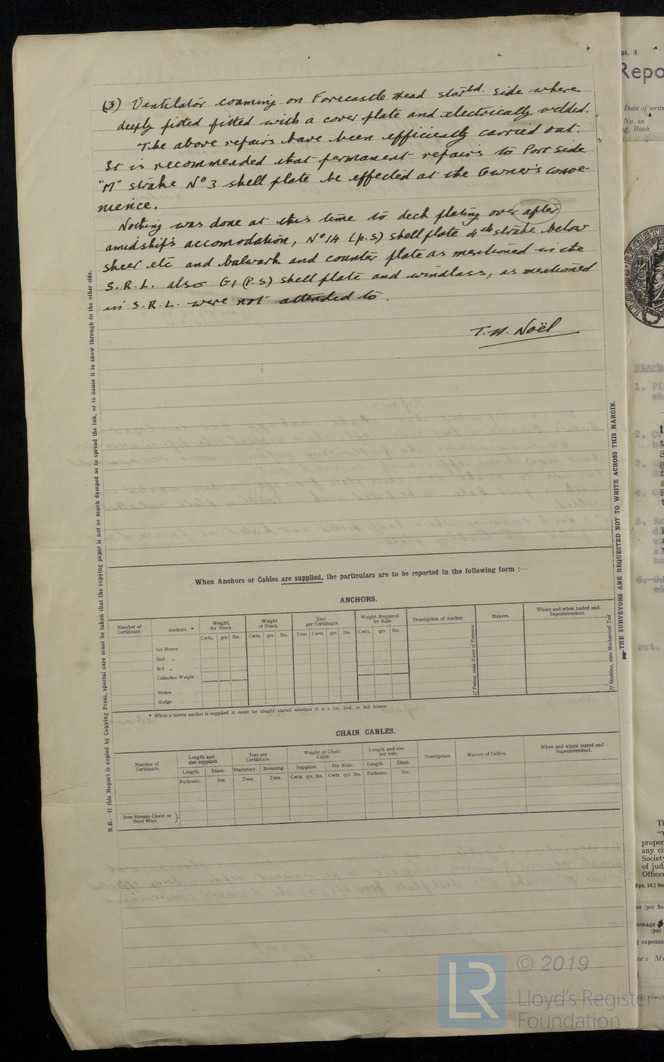 (3) Ventilator coaming on Forecastle Head starbd. side where
deeply pitted fitted with a cover plate and electrically welded.
The above repairs have been efficiently carried out.
It is recommended that permanent repairs to Port side
"M" strake No 3 shell plate be effected at the Owner's conve-
nience.
Nothing was done at this time to deck plating over after
amidships accomodation, No 14 (p.s) shell plate 4th strake below
sheer etc and bulwark and counter plate as mentioned in the
S.R.L. also G1 (P.S) shell plate and windlass, as mentioned
in S.R.L. were not attended to.
T. H. Noël
N.B.—If this Report is copied by Copying Press, special care must be taken that the copying paper is not so much damped as to spread the ink, or to cause it to show through to the other side.
THE SURVEYORS ARE REQUESTED NOT TO WRITE ACROSS THIS MARGIN.
When Anchors or Cables are supplied, the particulars are to be reported in the following form :—
ANCHORS.
Number of Certificate. Anchors. * Weight, Ex Stock. Weight of Stock. Test per Certificate. Weight Required by Rule. Description of Anchor. Makers. Where and when tested and Superintendent.
Cwts. qrs. lbs. Cwts. qrs. lbs. Tons Cwts. qrs. lbs. Cwts. qrs. lbs.
If Patent, state Name of Patentee
If Stockless, state Mechanical Test
1st Bower
2nd „
3rd „
Collective Weight
Stream
Kedge
* When a bower anchor is supplied it must be clearly stated whether it is a 1st, 2nd, or 3rd bower.
CHAIN CABLES.
Number of Certificate. Length and size supplied. Test per Certificate. Weight of Chain Cable. Length and size per rule. Description Makers of Cables. When and where tested and Superintendent.
Length. Diam. Statutory. Breaking. Supplied. Per Rule. Length. Diam.
Fathoms. Ins. Tons. Tons. Cwts. qrs. lbs. Cwts. qrs. lbs. Fathoms. Ins.
Iron Stream Chain or Steel Wire
Repo
Date of
No. in
Book
1.
2.
3.
4.
5.
proper
any
Society
of
Officer
LR
© 2019
Lloyd's Register
Foundation